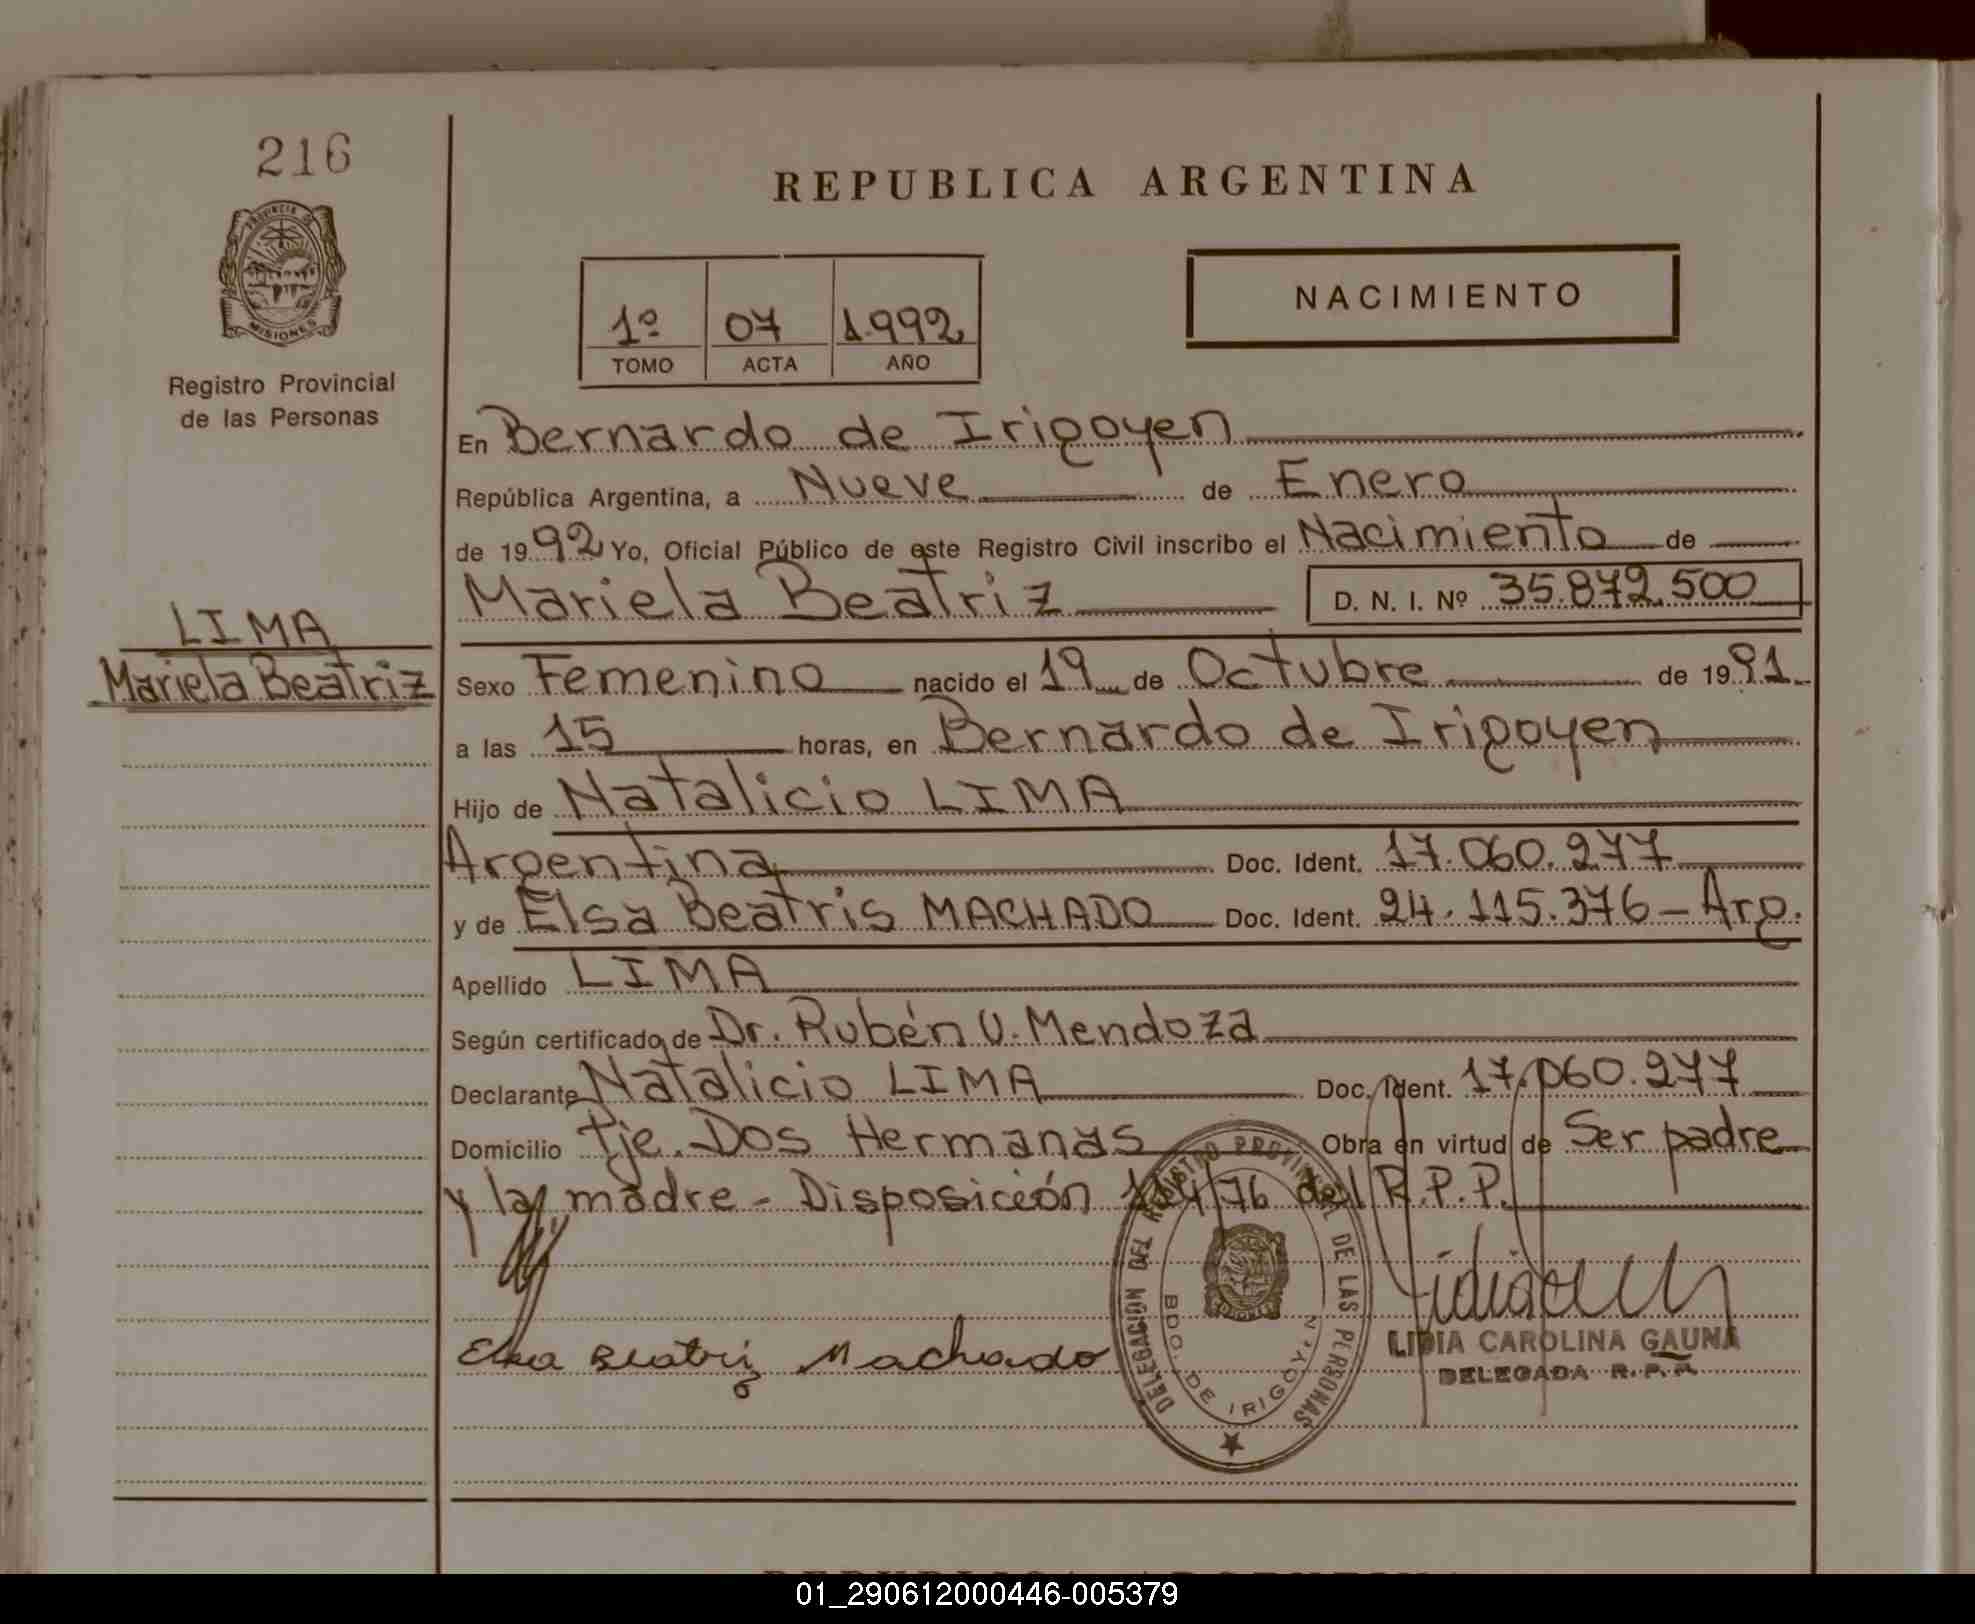 216
REPUBLICA ARGENTINA
PROVINCIA DE
MISIONES
Registro Provincial
de las Personas
1º 07 1.992
TOMO ACTA AÑO
NACIMIENTO
En Bernardo de Irigoyen
República Argentina, a Nueve de Enero
de 1992 Yo, Oficial Público de este Registro Civil inscribo el Nacimiento de
Mariela Beatriz D. N. I. Nº 35.872.500
LIMA
Mariela Beatriz
Sexo Femenino nacido el 19 de Octubre de 1991
a las 15 horas, en Bernardo de Irigoyen
Hijo de Natalicio LIMA
Argentina Doc. Ident. 17.060.277
y de Elsa Beatris MACHADO Doc. Ident. 24.115.376 - Arg.
Apellido LIMA
Según certificado de Dr. Rubén V. Mendoza
Declarante Natalicio LIMA Doc. Ident. 17.060.277
Domicilio Pje. Dos Hermanas Obra en virtud de Ser padre
y la madre - Disposición /76 del R.P.P.
DELEGACION DEL REGISTRO PROVINCIAL DE LAS PERSONAS
BDO. DE IRIGOYEN
Elsa Beatriz Machado
LIDIA CAROLINA GAUNA
DELEGADA R.P.P.
01_290612000446-005379